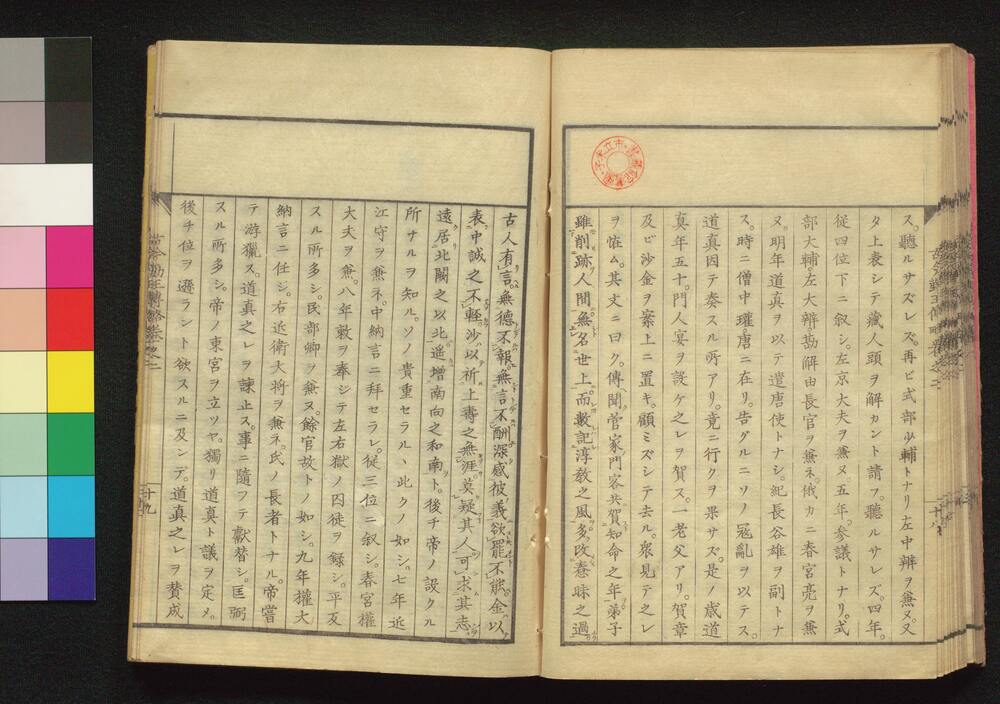 ス。聽ルサズレズ。再ビ式部少輔トナリ左中辨ヲ兼ヌ。又
タ上表シテ藏人頭ヲ解カント請フ。聽ルサレズ。四年。
從四位下ニ叙シ。左京大夫ヲ兼ヌ。五年。參議トナリ。式
部大輔。左大辨。勘解由長官ヲ兼ネ。俄カニ春宮亮ヲ兼
ヌ。明年道真ヲ以テ遣唐使トナシ。紀長谷雄ヲ副トナ
ス。時ニ僧中瓘。唐ニ在リ。告グルニソノ寇亂ヲ以テス。
道真因テ奏スル所アリ。竟ニ行クヲ果サズ。是ノ歳道
真年五十。門人宴ヲ設ケ之レヲ賀ス。一老父アリ。賀章
及ビ沙金ヲ案上ニ置キ。顧ミズシテ去ル。衆見テ之レ
ヲ怪ム。其文ニ曰ク。傳聞菅家門客共賀知命之年。弟子
雖削跡人間。無名世上。而數記淳教之風。多改憃昧之過。
古人有言。無德不報。無言不酬。深感彼義。欲罷不能。金以
表中誠之不輕。沙以祈上壽之無涯。莫疑其人。可求其志。
遠居北闕之以北。遙增南向之和南ト。後チ帝ノ設クル
所サルヲ知ル。ソノ貴重セラルヽ此クノ如シ。七年近
江守ヲ兼ネ。中納言ニ拜セラレ。從三位ニ叙シ。春宮權
大夫ヲ兼。八年敕ヲ奉シテ左右獄ノ囚徒ヲ録シ。平反
スル所多シ。民部卿ヲ兼ヌ。餘官故トノ如シ。九年權大
納言ニ任シ。右近衛大将ヲ兼ネ。氏ノ長者トナル。帝嘗
テ游獵ス。道真之レヲ諫止ス。事ニ隨フテ獻替シ。匡弼
スル所多シ。帝ノ東宮ヲ立ツヤ。獨リ道真ト議ヲ定メ。
後チ位ヲ遜ラント欲スルニ及ンデ。道真之レヲ賛成
十九